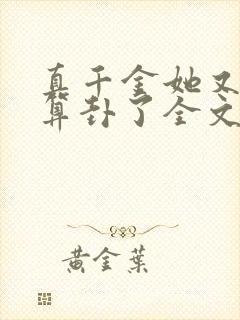 真千金她又
算卦了全文
黄金葉